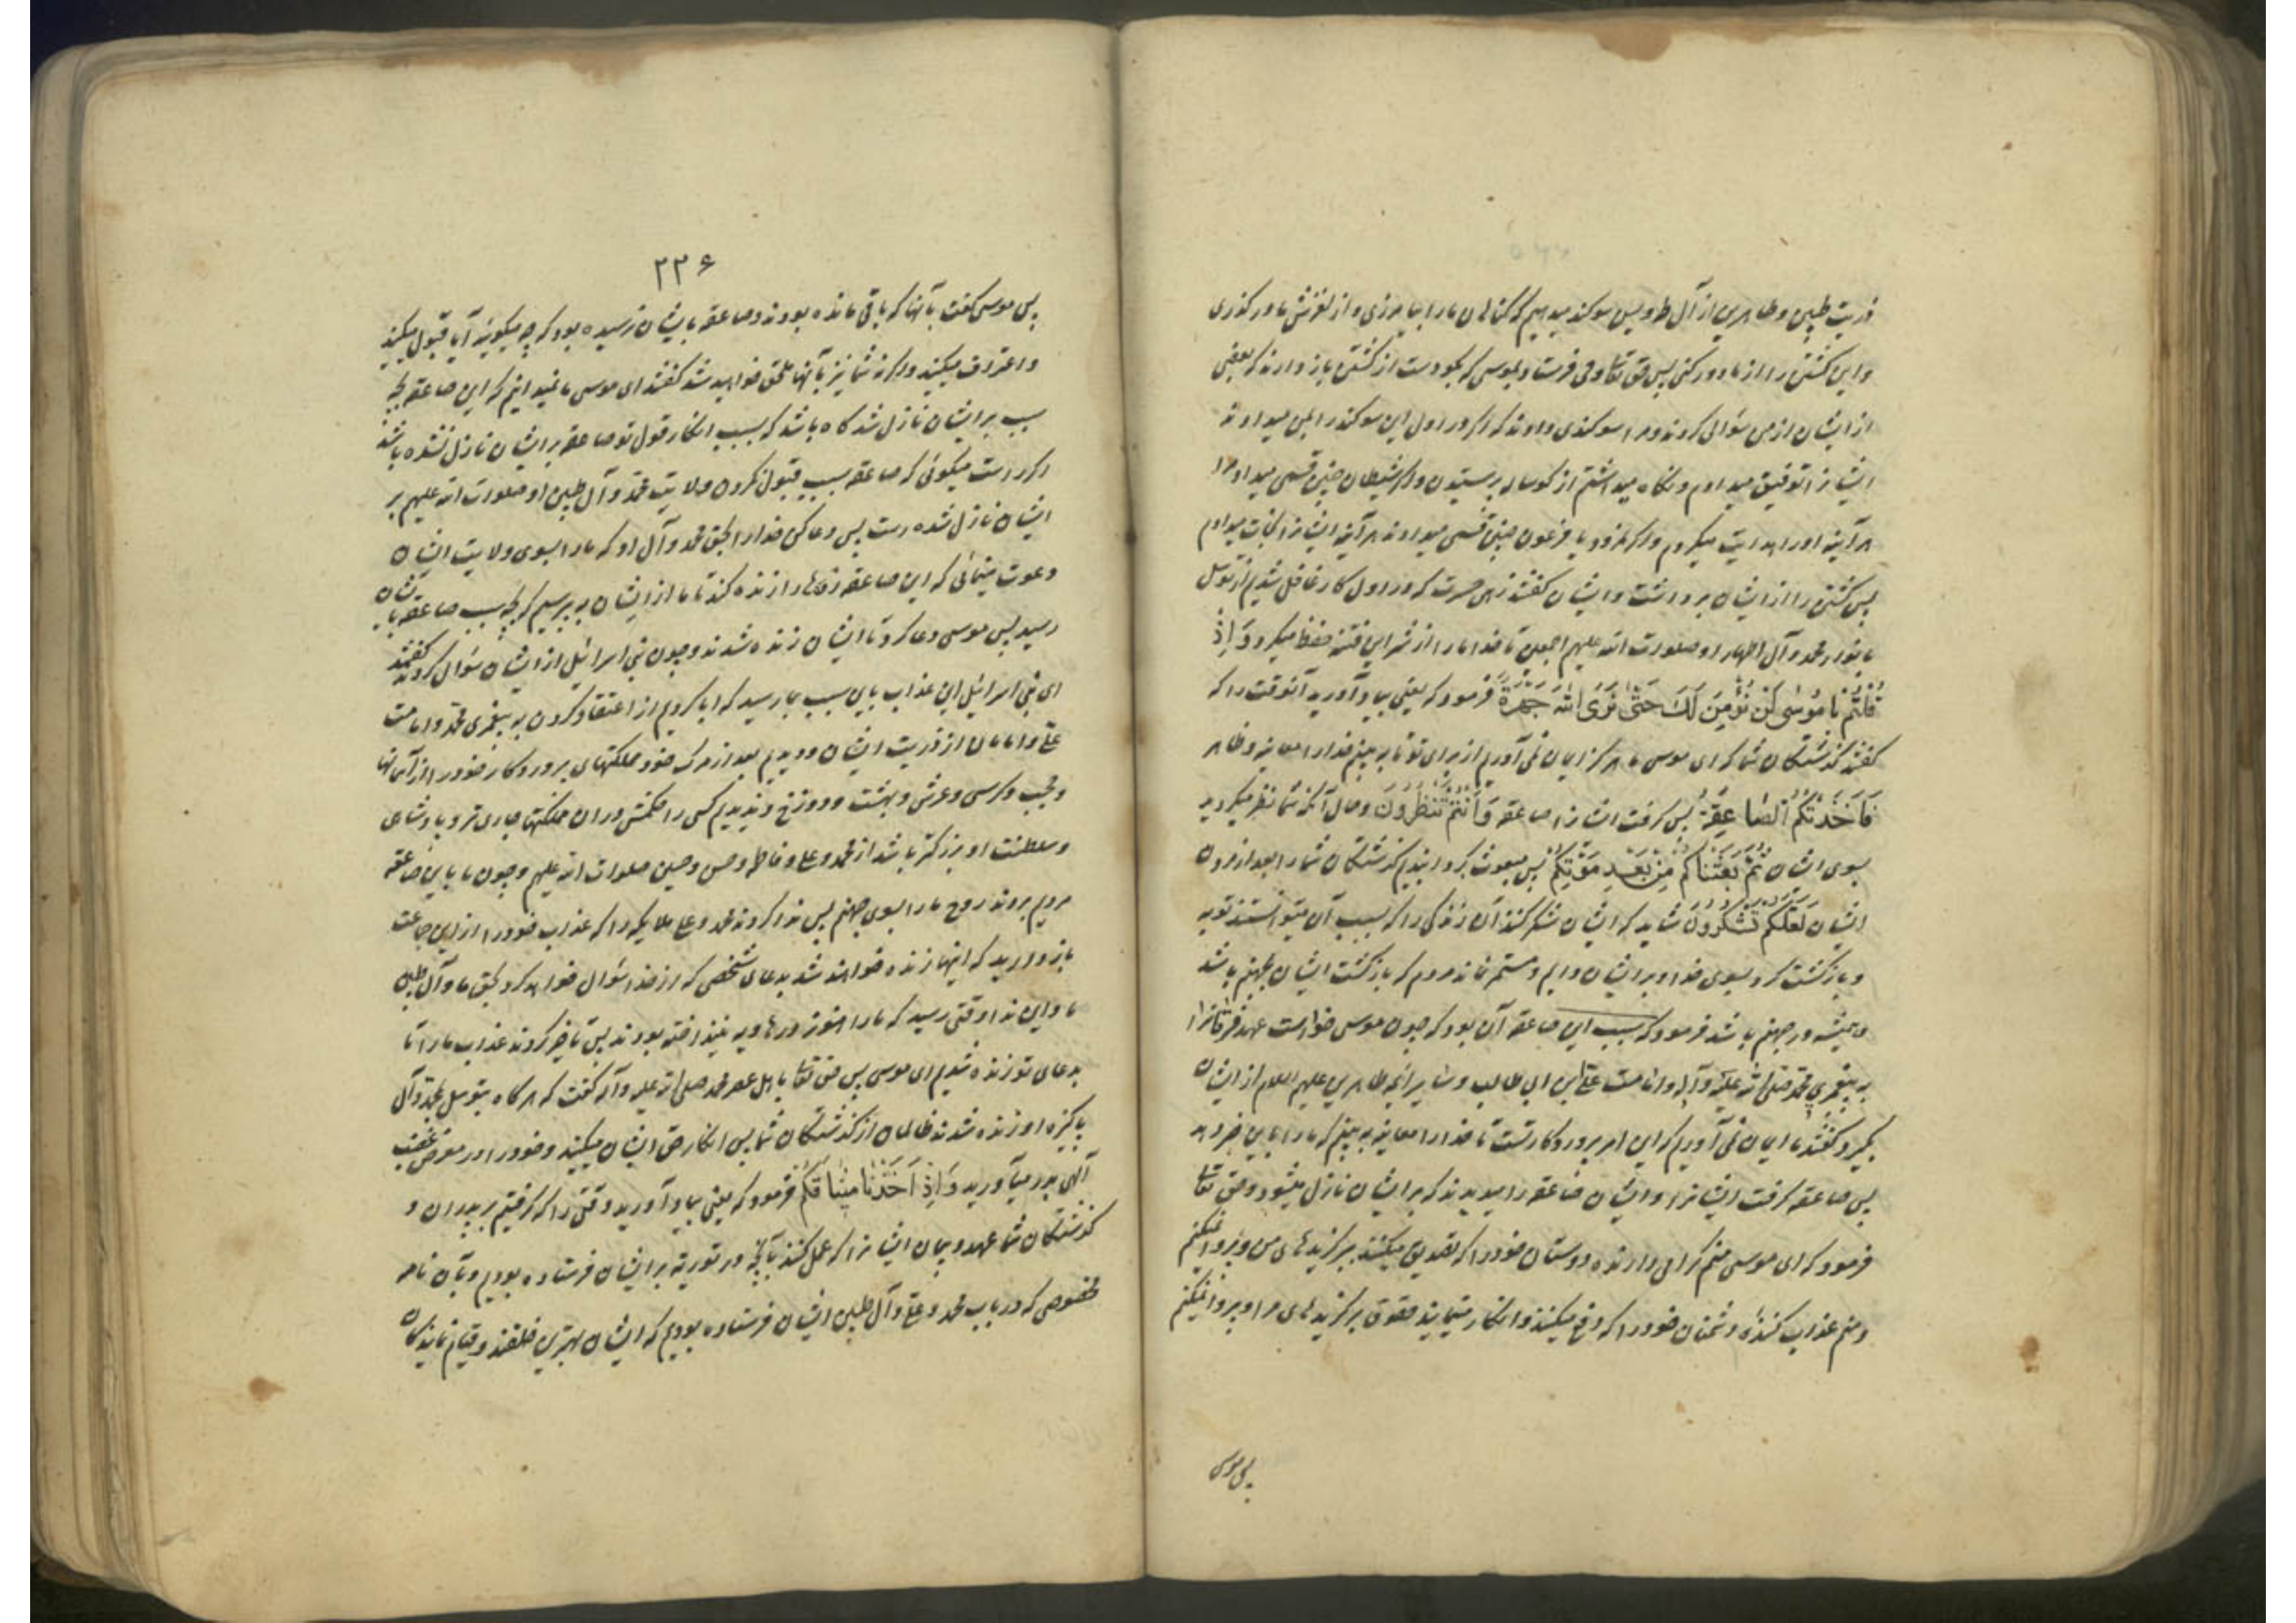 ذریت طیبین و طاهرین از آل طه و یس سوکند میدهیم که کناهان ما را بیامرزی و از لغزش ما درکذری
و این کشتن را از ما دور کنی پس حق تعالی وحی فرستاد بموسی که بکو دست از کشتن باز دارند که بعضی
از ایشان از من سؤالی کردند و مرا سوکندی دادند که اکر در اول این سوکند را بمن میدادند
ایشانرا توفیق میدادم و نکاه میداشتم از کوساله پرستیدن و اکر شیطان چنین قسمی میداد مرا
هرآینه او را هدایت میکردم و اکر نمرود یا فرعون چنین قسمی میدادند هرآینه ایشانرا نجات میدادم
پس کشتن را از ایشان برداشت و ایشان کفتند زهی حسرت که در اول کار غافل شدیم از توسل
بانوار محمد و آل اطهار او صلوات الله علیهم اجمعین تا خدا ما را از شر این فتنه حفظ میکرد وَاِذْ
قُلْتُمْ یٰا مُوسٰی لَنْ نُؤْمِنَ لَكَ حَتّٰی نَرَی اللّٰهَ جَهْرَةً فرمود که یعنی بیاد آورید آنوقت را که
کفتند کذشتکان شما که ای موسی ما هرکز ایمان نمی آوریم از برای تو تا به بینیم خدا را معاینه و ظاهر
فَاَخَذَتْكُمُ الصّٰاعِقَةُ پس کرفت ایشانرا صاعقه وَاَنْتُمْ تَنْظُرُونَ و حال آنکه شما نظر میکردید
بسوی ایشان ثُمَّ بَعَثْنٰاكُمْ مِنْ بَعْدِ مَوْتِكُمْ پس مبعوث کردانیدیم کذشتکان شما را بعد از مردن
ایشان لَعَلَّكُمْ تَشْكُرُونَ شاید که ایشان شکر کنند آن زندکی را که بسبب آن میتوانستند توبه
و بازکشت کرد بسوی خدا و بر ایشان دایم و مستمر نماند مردم که بازکشت ایشان بجهنم باشد
و همیشه در جهنم باشد فرمود که سبب این صاعقه آن بود که چون موسی خواست عهد فرقانرا
به پیغمبری محمد صلی الله علیه و آله و امامت علی ابن ابی طالب و سایر ائمه طاهرین علیهم السلام از ایشان
بکیرد کفتند ما ایمان نمی آوریم که این امر پروردکار تست تا خدا را معاینه به بینیم که ما را باین خبر دهد
پس صاعقه کرفت ایشانرا و ایشان صاعقه را میدیدند که بر ایشان نازل میشود و حق تعالی
فرمود که ای موسی منم کرامی دارنده دوستان خود را که تصدیق میکنند ببرکزیدهای من و پروا نمیکنم
و منم عذاب کننده دشمنان خود را که دفع میکنند و انکار مینمایند حقوق برکزیدهای مرا و پروا نمیکنم
پس موسی
۲۲۶
پس موسی کفت بآنها که باقی مانده بودند و صاعقه بایشان نرسیده بود که چه میکوئید آیا قبول میکنید
و اعتراف میکنید و اکر نه شما نیز بآنها ملحق خواهید شد کفتند ای موسی ما نمیدانیم که این صاعقه بچه
سبب بر ایشان نازل شد کاه باشد که بسبب انکار قول تو صاعقه بر ایشان نازل نشده باشد
اکر راست میکوئی که صاعقه بسبب قبول نکردن ولایت محمد و آل طیبین او صلوات الله علیهم بر
ایشان نازل شده است پس دعا کن خدا را بحق محمد و آل او که ما را بسوی ولایت ایشان
دعوت مینمائی که این صاعقه زدهها را زنده کند تا ما از ایشان به پرسیم که بچه سبب صاعقه بایشان
رسید پس موسی دعا کرد تا ایشان زنده شدند و چون بنی اسرائیل از ایشان سؤال کردند کفتند
ای بنی اسرائیل این عذاب باین سبب بما رسید که ابا کردیم از اعتقاد کردن به پیغمبری محمد و امامت
علی و امامان از ذریت ایشان و دیدیم بعد از مرک خود مملکتهای پروردکار خود را از آسمانها
و حجب و کرسی و عرش و بهشت و دوزخ و ندیدیم کسی را حکمش در ان مملکتها جاری تر و پادشاهی
و سلطنت او بزرکتر باشد از محمد و علی و فاطمه و حسن و حسین صلوات الله علیهم و چون ما باین صاعقه
مردیم بردند روح ما را بسوی جهنم پس ندا کردند محمد و علی ملایکه را که عذاب خود را از این جماعت
باز دارید که اینها زنده خواهند شد بدعای شخصی که از خدا سؤال خواهد کرد بحق ما و آل طیبین
ما و این ندا وقتی رسید که ما را هنوز در هاویه نینداخته بودند پس تاخیر کردند عذاب ما را تا
بدعای تو زنده شدیم ای موسی پس حق تعالی باهل عصر محمد صلی الله علیه و آله کفت که هرکاه بتوسل محمد و آل
پاکیزه او زنده شدند ظالمان از کذشتکان شما پس انکار حق ایشان میکنید و خود را در معرض غضب
الهی بدر میآورید وَاِذْ اَخَذْنٰا مِیثٰاقَكُمْ فرمود که یعنی بیاد آورید وقتی را که کرفتیم بر پدران و
کذشتکان شما عهد و پیمان ایشانرا که عمل کنند بآنچه در توریة بر ایشان فرستاده بودیم و بآن نامه
مخصوصی که در باب محمد و علی و آل طیبین ایشان فرستاده بودیم که ایشان بهترین خلقند و قیام نمایندکان